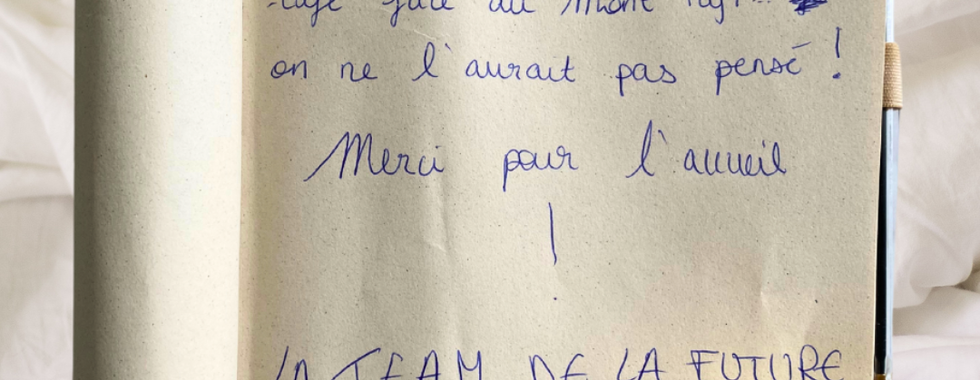 face au Mont
on ne l'aurait pas pensé !
Merci pour l'accueil
!
LA TEAM DE LA FUTURE